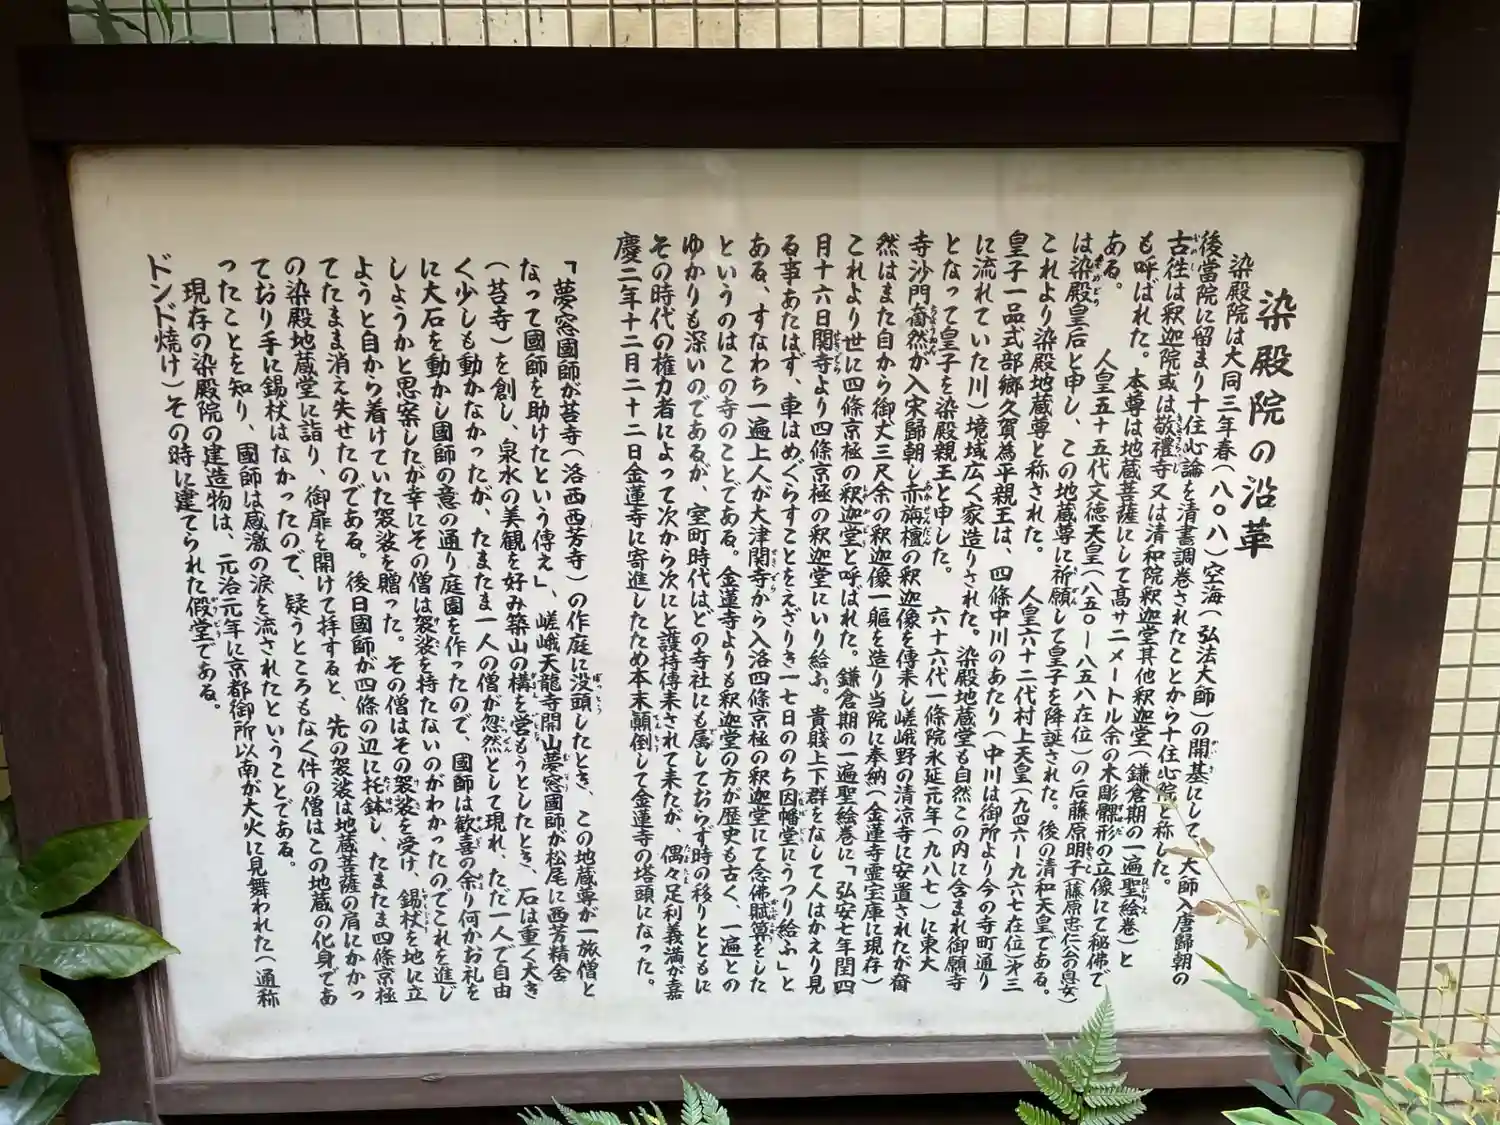 染殿院の沿革
染殿院は大同三年春(八〇八)空海(弘法大師)の開基にして、大師入唐歸朝の
後當院に留まり十住心論を清書調巻されたことから十住心院と称した。
古徃は釈迦院或は敬禮寺又は清和院釈迦堂其他釈迦堂(鎌倉期の一遍聖絵巻)と
も呼ばれた。本尊は地蔵菩薩にして高サ二メートル余の木彫髁形の立像にて秘佛で
ある。　人皇五十五代文徳天皇(八五〇ー八五八在位)の后藤原明子(藤原忠仁公の息女)
は染殿皇后と申し、この地蔵尊に祈願して皇子を降誕された。後の清和天皇である。
これより染殿地蔵尊と称された。　人皇六十二代村上天皇(九四六ー九六七在位)才三
皇子一品式部卿久賀為平親王は、四條中川のあたり(中川は御所より今の寺町通り
に流れていた川)境域広く家造りされた。染殿地蔵堂も自然この内に含まれ御願寺
となって皇子を染殿親王と申した。　六十六代一條院永延元年(九八七)に東大
寺沙門奝然が入宋歸朝し赤栴檀の釈迦像を傳来し嵯峨野の清凉寺に安置されたが奝
然はまた自から御丈三尺余の釈迦像一軀を造り当院に奉納(金蓮寺霊宝庫に現存)
これより世に四條京極の釈迦堂と呼ばれた。鎌倉期の一遍聖絵巻に「弘安七年閏四
月十六日関寺より四條京極の釈迦堂にいり給ふ。貴賤上下群をなして人はかえり見
る事あたはず、車はめぐらすことをえざりき一七日ののち因幡堂にうつり給ふ」と
ある、すなわち一遍上人が大津関寺から入洛四條京極の釈迦堂にて念佛賦算をした
というのはこの寺のことである。金蓮寺よりも釈迦堂の方が歴史も古く、一遍との
ゆかりも深いのであるが、室町時代はどの寺社にも属しておらず時の移りとともに
その時代の権力者によって次から次にと護持傳来されて来たが、偶々足利義満が嘉
慶二年十二月二十二日金蓮寺に寄進したため本末顚倒して金蓮寺の塔頭になった。
「夢窓國師が苔寺(洛西西芳寺)の作庭に没頭したとき、この地蔵尊が一旅僧と
なって國師を助けたという傳え」、嵯峨天龍寺開山夢窓國師が松尾に西芳精舎
(苔寺)を創し、泉水の美観を好み築山の構を営もうとしたとき、石は重く大き
く少しも動かなかったが、たまたま一人の僧が忽然として現れ、ただ一人で自由
に大石を動かし國師の意の通り庭園を作ったので、國師は歓喜の余り何かお礼を
しようかと思案したが幸にその僧は袈裟を持たないのがわかったのでこれを進じ
ようと自から着けていた袈裟を贈った。その僧はその袈裟を受け、錫杖を地に立
てたまま消え失せたのである。後日國師が四條の辺に托鉢し、たまたま四條京極
の染殿地蔵堂に詣り、御扉を開けて拝すると、先の袈裟は地蔵菩薩の肩にかかっ
ており手に錫杖はなかったので、疑うところもなく件の僧はこの地蔵の化身であ
ったことを知り、國師は感激の涙を流されたということである。
現存の染殿院の建造物は、元治元年に京都御所以南が大火に見舞われた(通称
ドンド焼け)その時に建てられた假堂である。